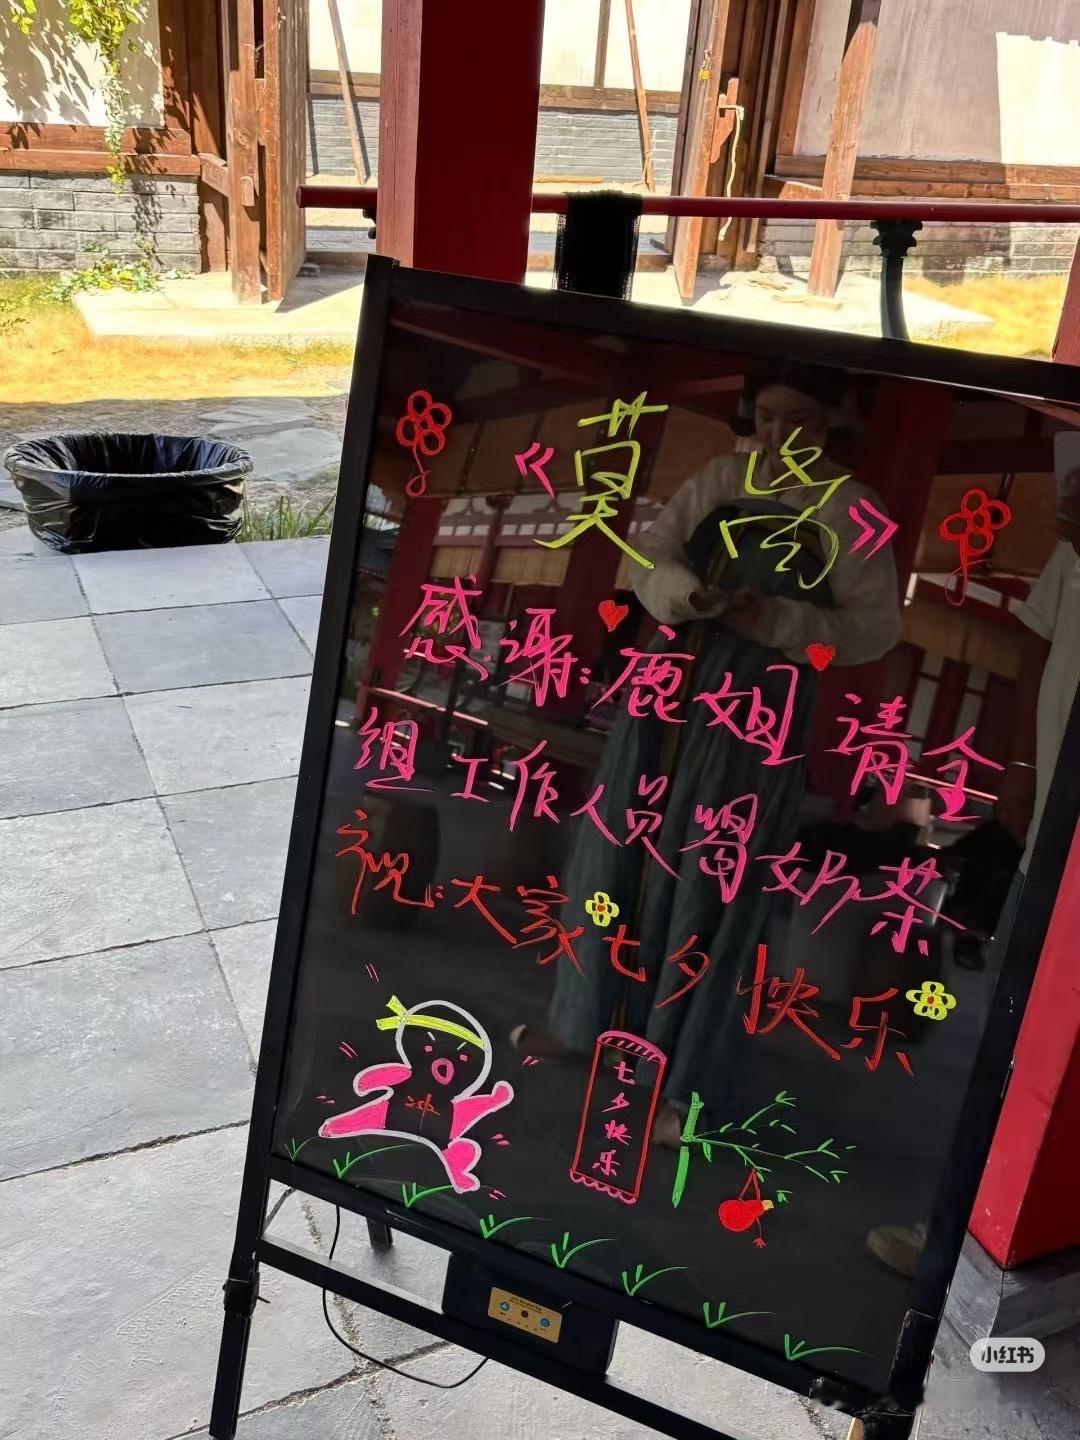 《莫离》
感谢:鹿姐请全
组工作人员喝奶茶
祝:大家七夕快乐
冲
七夕快乐
小红书